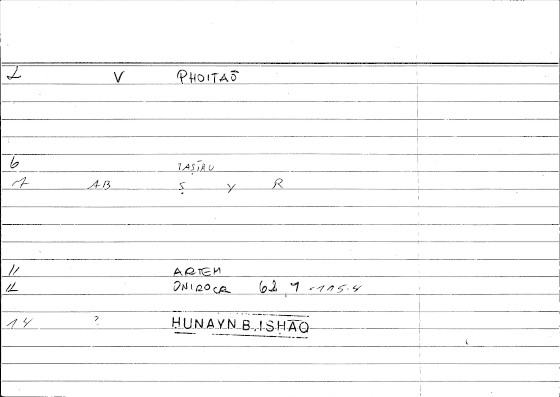 2 V PHOITAŌ
6 TAṢĪRU
7 AB Ṣ Y R
11 ARTEM
12 ONIROCR 115.4
14 ? HUNAYN B. ISHĀQ